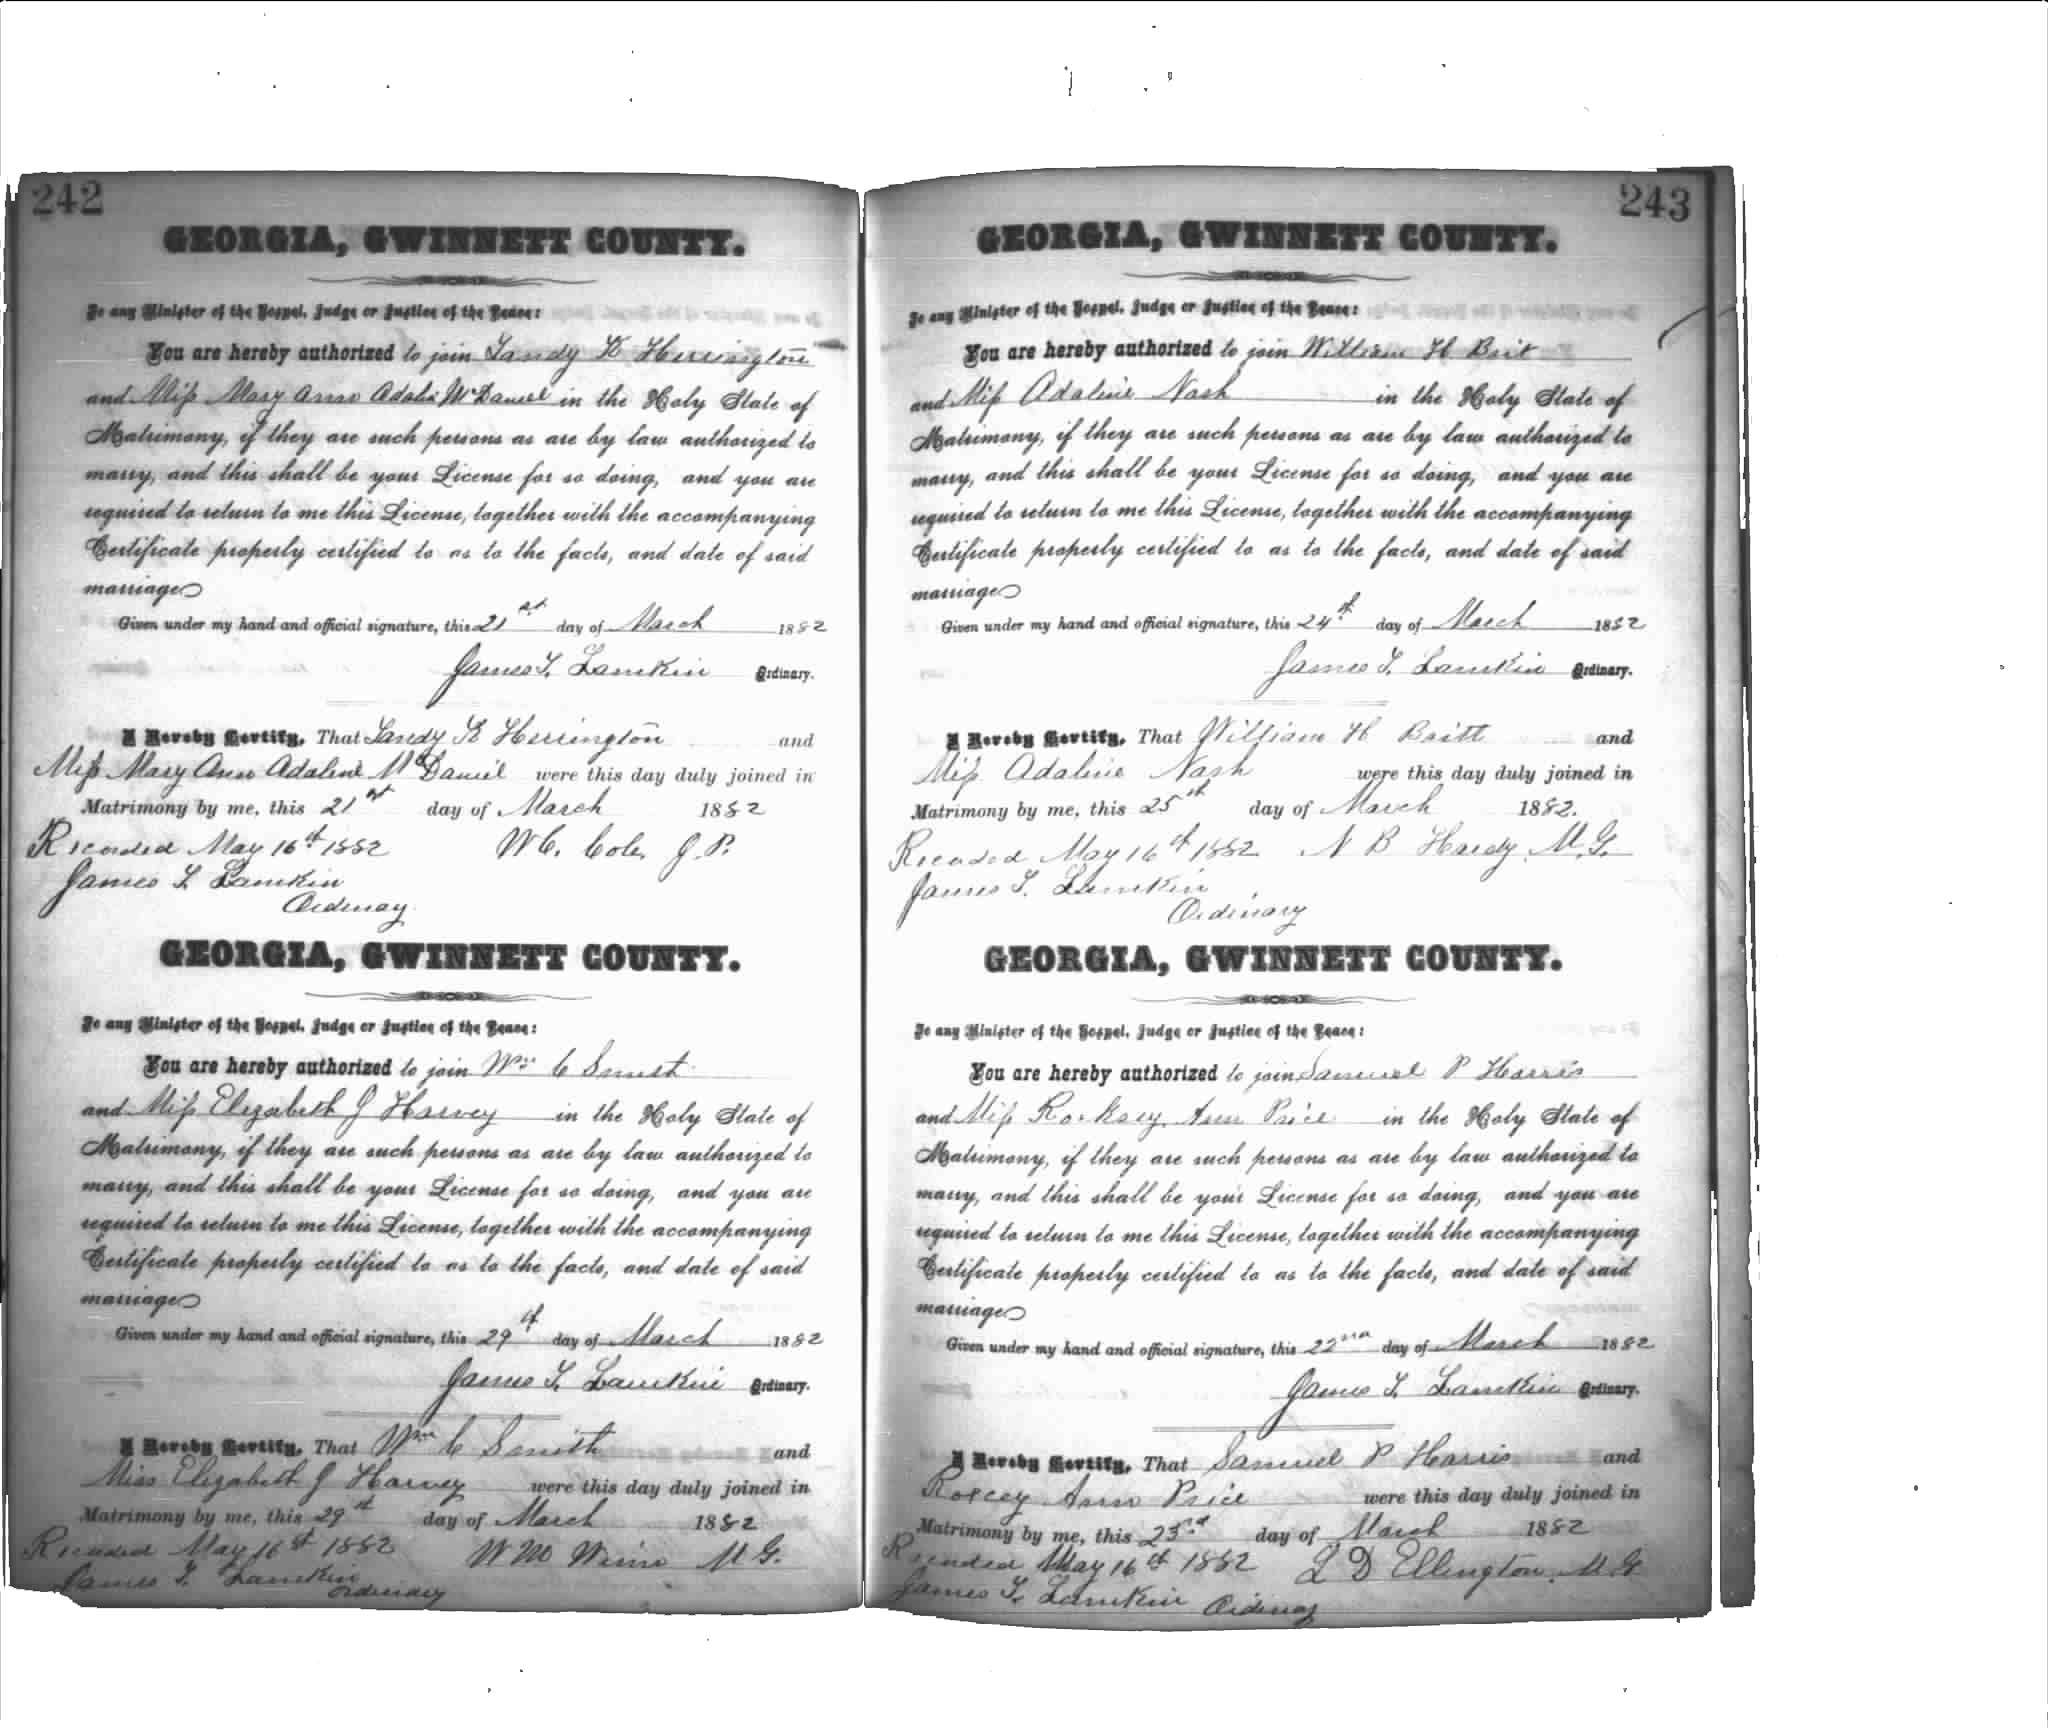 242
GEORGIA, GWINNETT COUNTY.
To any Minister of the Gospel, Judge or Justice of the Peace:
You are hereby authorized to join Sandy K Herrington
and Miss Mary Ann Adalin McDaniel in the Holy State of
Matrimony, if they are such persons as are by law authorized to
marry, and this shall be your License for so doing, and you are
required to return to me this License, together with the accompanying
Certificate properly certified to as to the facts, and date of said
marriage
Given under my hand and official signature, this 21st day of March 1882
James T. Lamkin Ordinary.
I Hereby Certify, That Sandy K Herrington and
Miss Mary Ann Adaline McDaniel were this day duly joined in
Matrimony by me, this 21st day of March 1882
Recorded May 16th 1882 W C. Cole J. P.
James T Lamkin
Ordinay
GEORGIA, GWINNETT COUNTY.
To any Minister of the Gospel, Judge or Justice of the Peace:
You are hereby authorized to join Wm C Smith
and Miss Elizabeth J Harvey in the Holy State of
Matrimony, if they are such persons as are by law authorized to
marry, and this shall be your License for so doing, and you are
required to return to me this License, together with the accompanying
Certificate properly certified to as to the facts, and date of said
marriage
Given under my hand and official signature, this 29th day of March 1882
James T. Lamkin Ordinary.
I Hereby Certify, That Wm C Smith and
Miss Elizabeth J Harvey were this day duly joined in
Matrimony by me, this 29th day of March 1882
Recorded May 16th 1882 W M Winn M G.
James T. Lamkin
Ordinary
243
GEORGIA, GWINNETT COUNTY.
To any Minister of the Gospel, Judge or Justice of the Peace:
You are hereby authorized to join William H Brit
and Miss Adaline Nash in the Holy State of
Matrimony, if they are such persons as are by law authorized to
marry, and this shall be your License for so doing, and you are
required to return to me this License, together with the accompanying
Certificate properly certified to as to the facts, and date of said
marriage
Given under my hand and official signature, this 24th day of March 1882
James T. Lamkin Ordinary.
I Hereby Certify, That William H Britt and
Miss Adaline Nash were this day duly joined in
Matrimony by me, this 25th day of March 1882.
Recorded May 16th 1882 N B Hardy M. G.
James T. Lamkin
Ordinary
GEORGIA, GWINNETT COUNTY.
To any Minister of the Gospel, Judge or Justice of the Peace:
You are hereby authorized to join Samuel P Harris
and Miss Rocksey Ann Price in the Holy State of
Matrimony, if they are such persons as are by law authorized to
marry, and this shall be your License for so doing, and you are
required to return to me this License, together with the accompanying
Certificate properly certified to as to the facts, and date of said
marriage
Given under my hand and official signature, this 22nd day of March 1882
James T. Lamkin Ordinary.
I Hereby Certify, That Samuel P Harris and
Roxcey Ann Price were this day duly joined in
Matrimony by me, this 23rd day of March 1882
Recorded May 16th 1882 L D Ellington. M. G
James T. Lamkin Ordinay